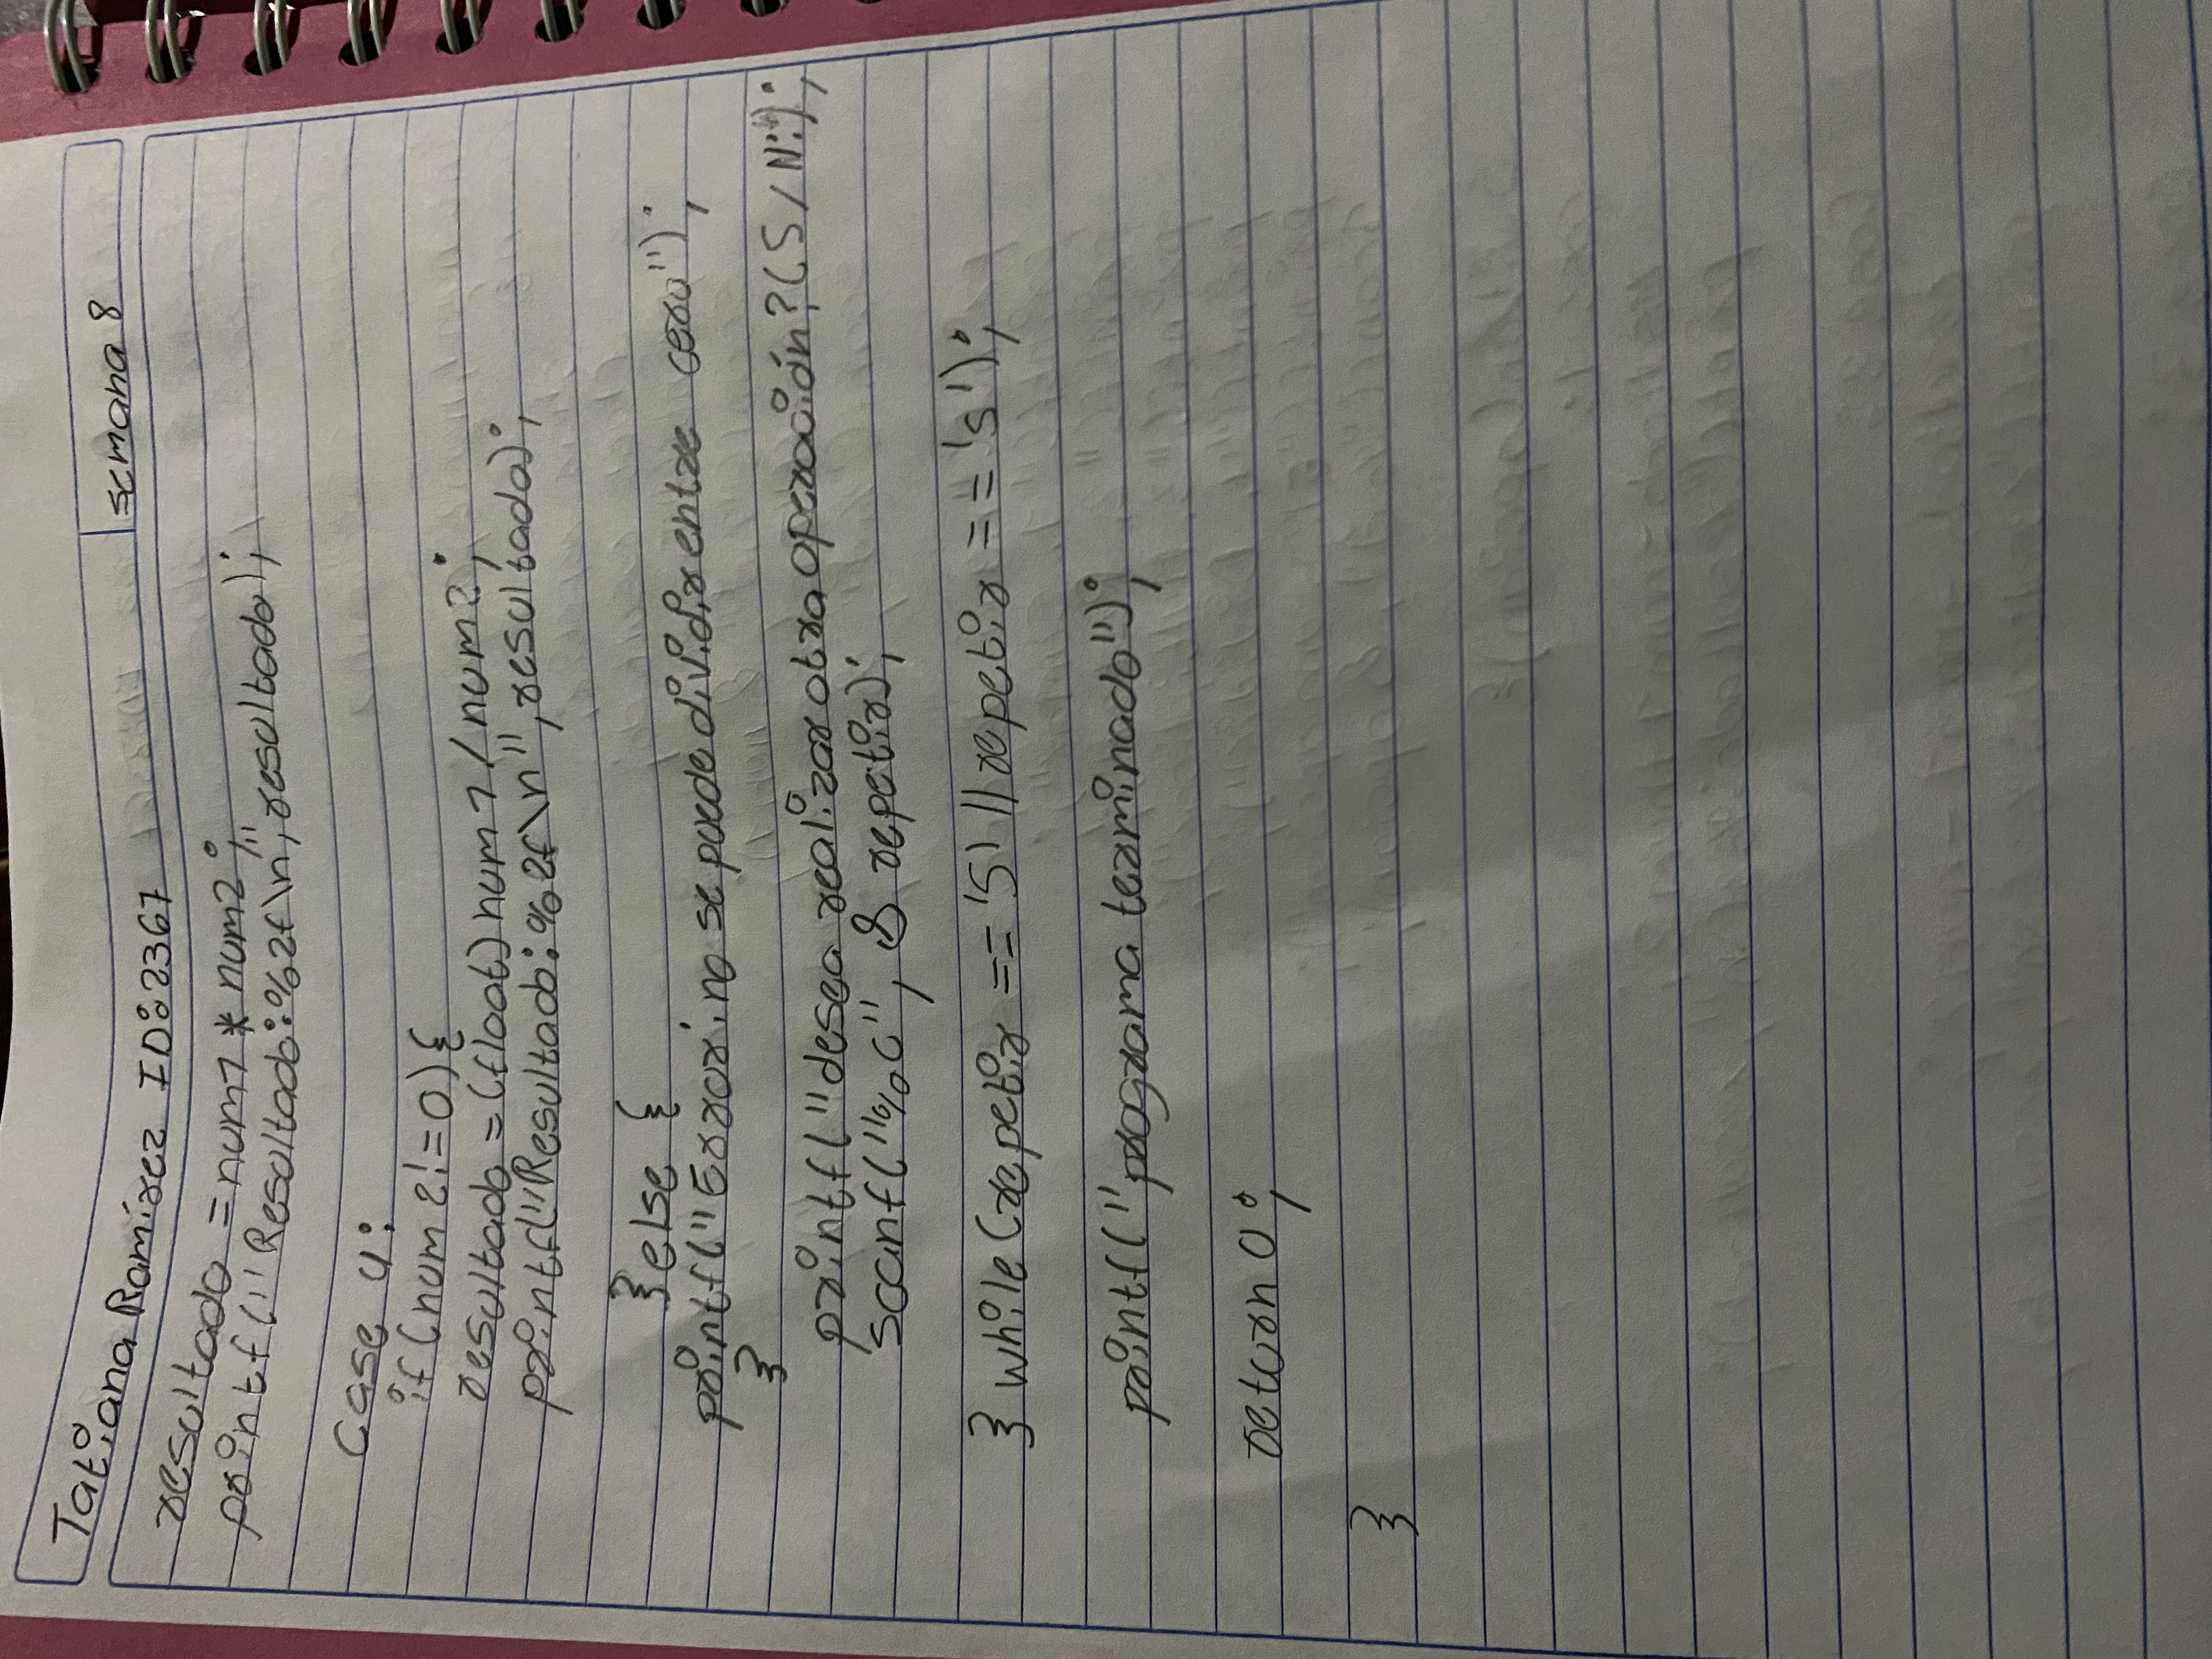 Tatiana Ramirez ID:2367
semana 8
resultado = num1 * num2;
printf("Resultado:%2f\n", resultado);
case 4:
if(num2!=0){
resultado = (float)num1/num2;
printf("Resultado:%2f\n", resultado);
}else {
printf("Error: no se puede dividir entre cero");
}
printf("desea realizar otra operación?(S/N:");
scanf("%c", & repetir);
} while(repetir == 'S' || repetir == 's');
printf("programa terminado");
return 0;
}